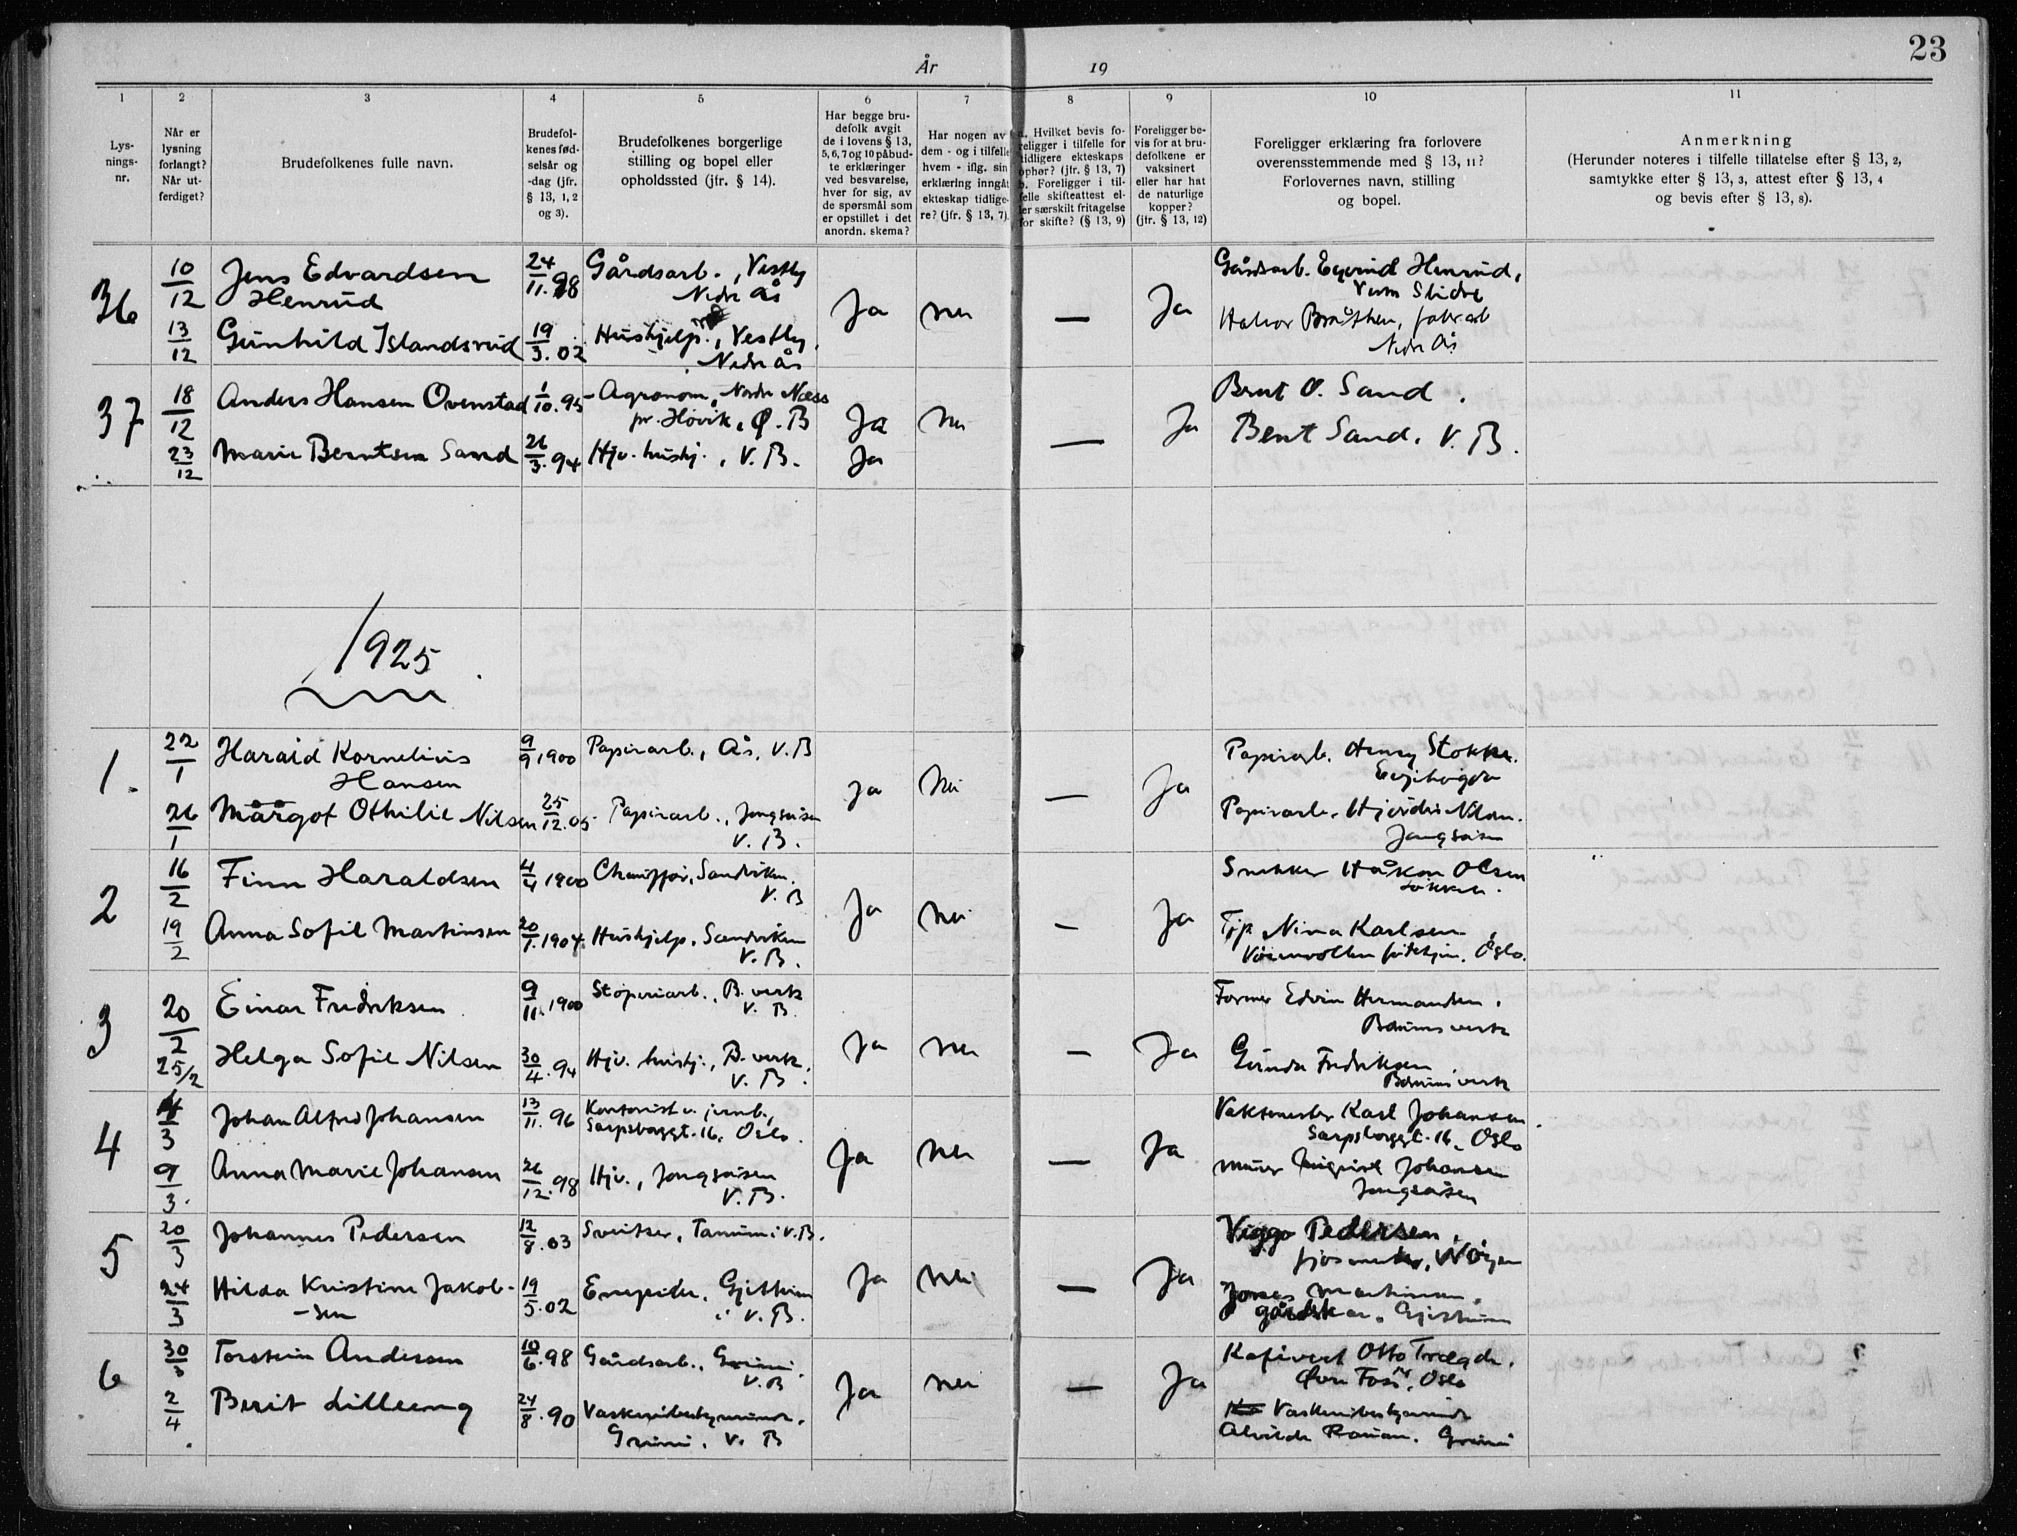 23
År 19
1 2 3 4 5 6 7 8 9 10 11
Lys-
nings-
nr.
Når er
lysning
forlangt?
Når ut-
ferdiget?
Brudefolkenes fulle navn.
Brudefol-
kenes fød-
selsår og
-dag (jfr.
§ 13, 1, 2
og 3).
Brudefolkenes borgerlige
stilling og bopel eller
opholdssted (jfr. § 14).
Har begge bru-
defolk avgit
de i lovens § 13,
5, 6, 7 og 10 påbud-
te erklæringer
ved besvarelse,
hver for sig, av
de spørsmål som
er opstillet i det
anordn. skema?
Har nogen av
dem - og i tilfelle
hvem - iflg. sin
erklæring inngåt
ekteskap tidlige-
re? (jfr. § 13, 7).
a. Hvilket bevis fo-
religger i tilfelle for
tidligere ekteskaps
ophør? (jfr. § 13, 7)
b. Foreligger i til-
felle skifteattest el-
ler særskilt fritagelse
for skifte? (§ 13, 9)
Foreligger be-
vis for at bru-
defolkene er
vaksinert
eller har hat
de naturlige
kopper?
(jfr. § 13, 12)
Foreligger erklæring fra forlovere
overensstemmende med § 13, 11?
Forlovernes navn, stilling
og bopel.
Anmerkning
(Herunder noteres i tilfelle tillatelse efter § 13, 2,
samtykke efter § 13, 3, attest efter § 13, 4
og bevis efter § 13, 8).
36
10/12 Jens Edvardsen
Henrud
24/11.98 Gårdsarb., Vestby
Nedre Ås
Ja nei — Ja
Gårdsarb. Eyvind Henrud,
Vestre Slidre
13/12 Gunhild Islandsrud 19/3.02 Hushjelp., Vestby,
Nedre Ås
Halvor Bråthen, fabr.arb
Nedre Ås
37
18/12 Anders Hansen Ovenstad 1/10.95 - Agronom, Nordre Næss
pr. Høvik, Ø. B
Ja nei — Ja
Brent O. Sand.
23/12 Marie Berntsen Sand 26/3.94 Hjv. hushj., V. B. Ja
Bent Sand, V. B.
1925.
1.
22/1 Harald Kornelius
Hansen
9/9 1900 Papirarb., Ås, V. B
Ja Nei — Ja
Papirarb. Henry Stokke.
26/1 Margot Othilie Nilsen 25/12.05 - Papirarb., Jongsåsen
V. B.
Papirarb. Hjørdis Nilsen.
Jongsåsen
2
16/2 Finn Haraldsen 4/4 1900 Chauffør, Sandviken,
V. B
Ja Nei — Ja
Snekker Håkon Olsen
Løkken.
19/2 Anna Sofie Martinsen 20/1.1904. Hushjelp, Sandviken
V. B.
Tjp. Nina Karlsen,
Oslo.
3
20/2 Einar Fredriksen 9/11.1900 Støperiarb., B. verk
V. B.
Ja nei — Ja
Former Edvin Hermansen,
Bærums verk
25/2 Helga Sofie Nilsen 30/4.94 Hjv. hushj., B. verk,
V. B.
Gunda Fredriksen
Bærums verk
4
4/3 Johan Alfred Johansen 13/11.96 Kontorist v. jernb.,
Sarpsborggt. 16, Oslo.
Ja nei — Ja
Vaktmester Karl Johansen.
Sarpsborggt. 16, Oslo
9/3. Anna Marie Johansen 26/12.98 Hjv., Jongsåsen
V. B.
Murer Johansen
Jongsåsen
5
20/3 Johannes Pedersen 12/8.03 Sveitser, Tanum i V. B.
Ja nei — Ja
Viggo Pedersen,
fjøsmester,
24/3 Hilda Kristine Jakob-
-sen
19/5.02 Enepike, Gjettum
i V. B.
Jonas Martinsen,
gårdskar, Gjettum
6
30/3 Torstein Andersen 10/6.98 Gårdsarb., Grini.
V. B
Ja nei — Ja
Kafévert Otto Trægde.
Øvre Foss, Oslo
2/4 Berit Lilleeng 24/8.90 Vaskeribestyrerinde,
Grini, V. B
Vaskeribestyrerinde
Alvilde Grini